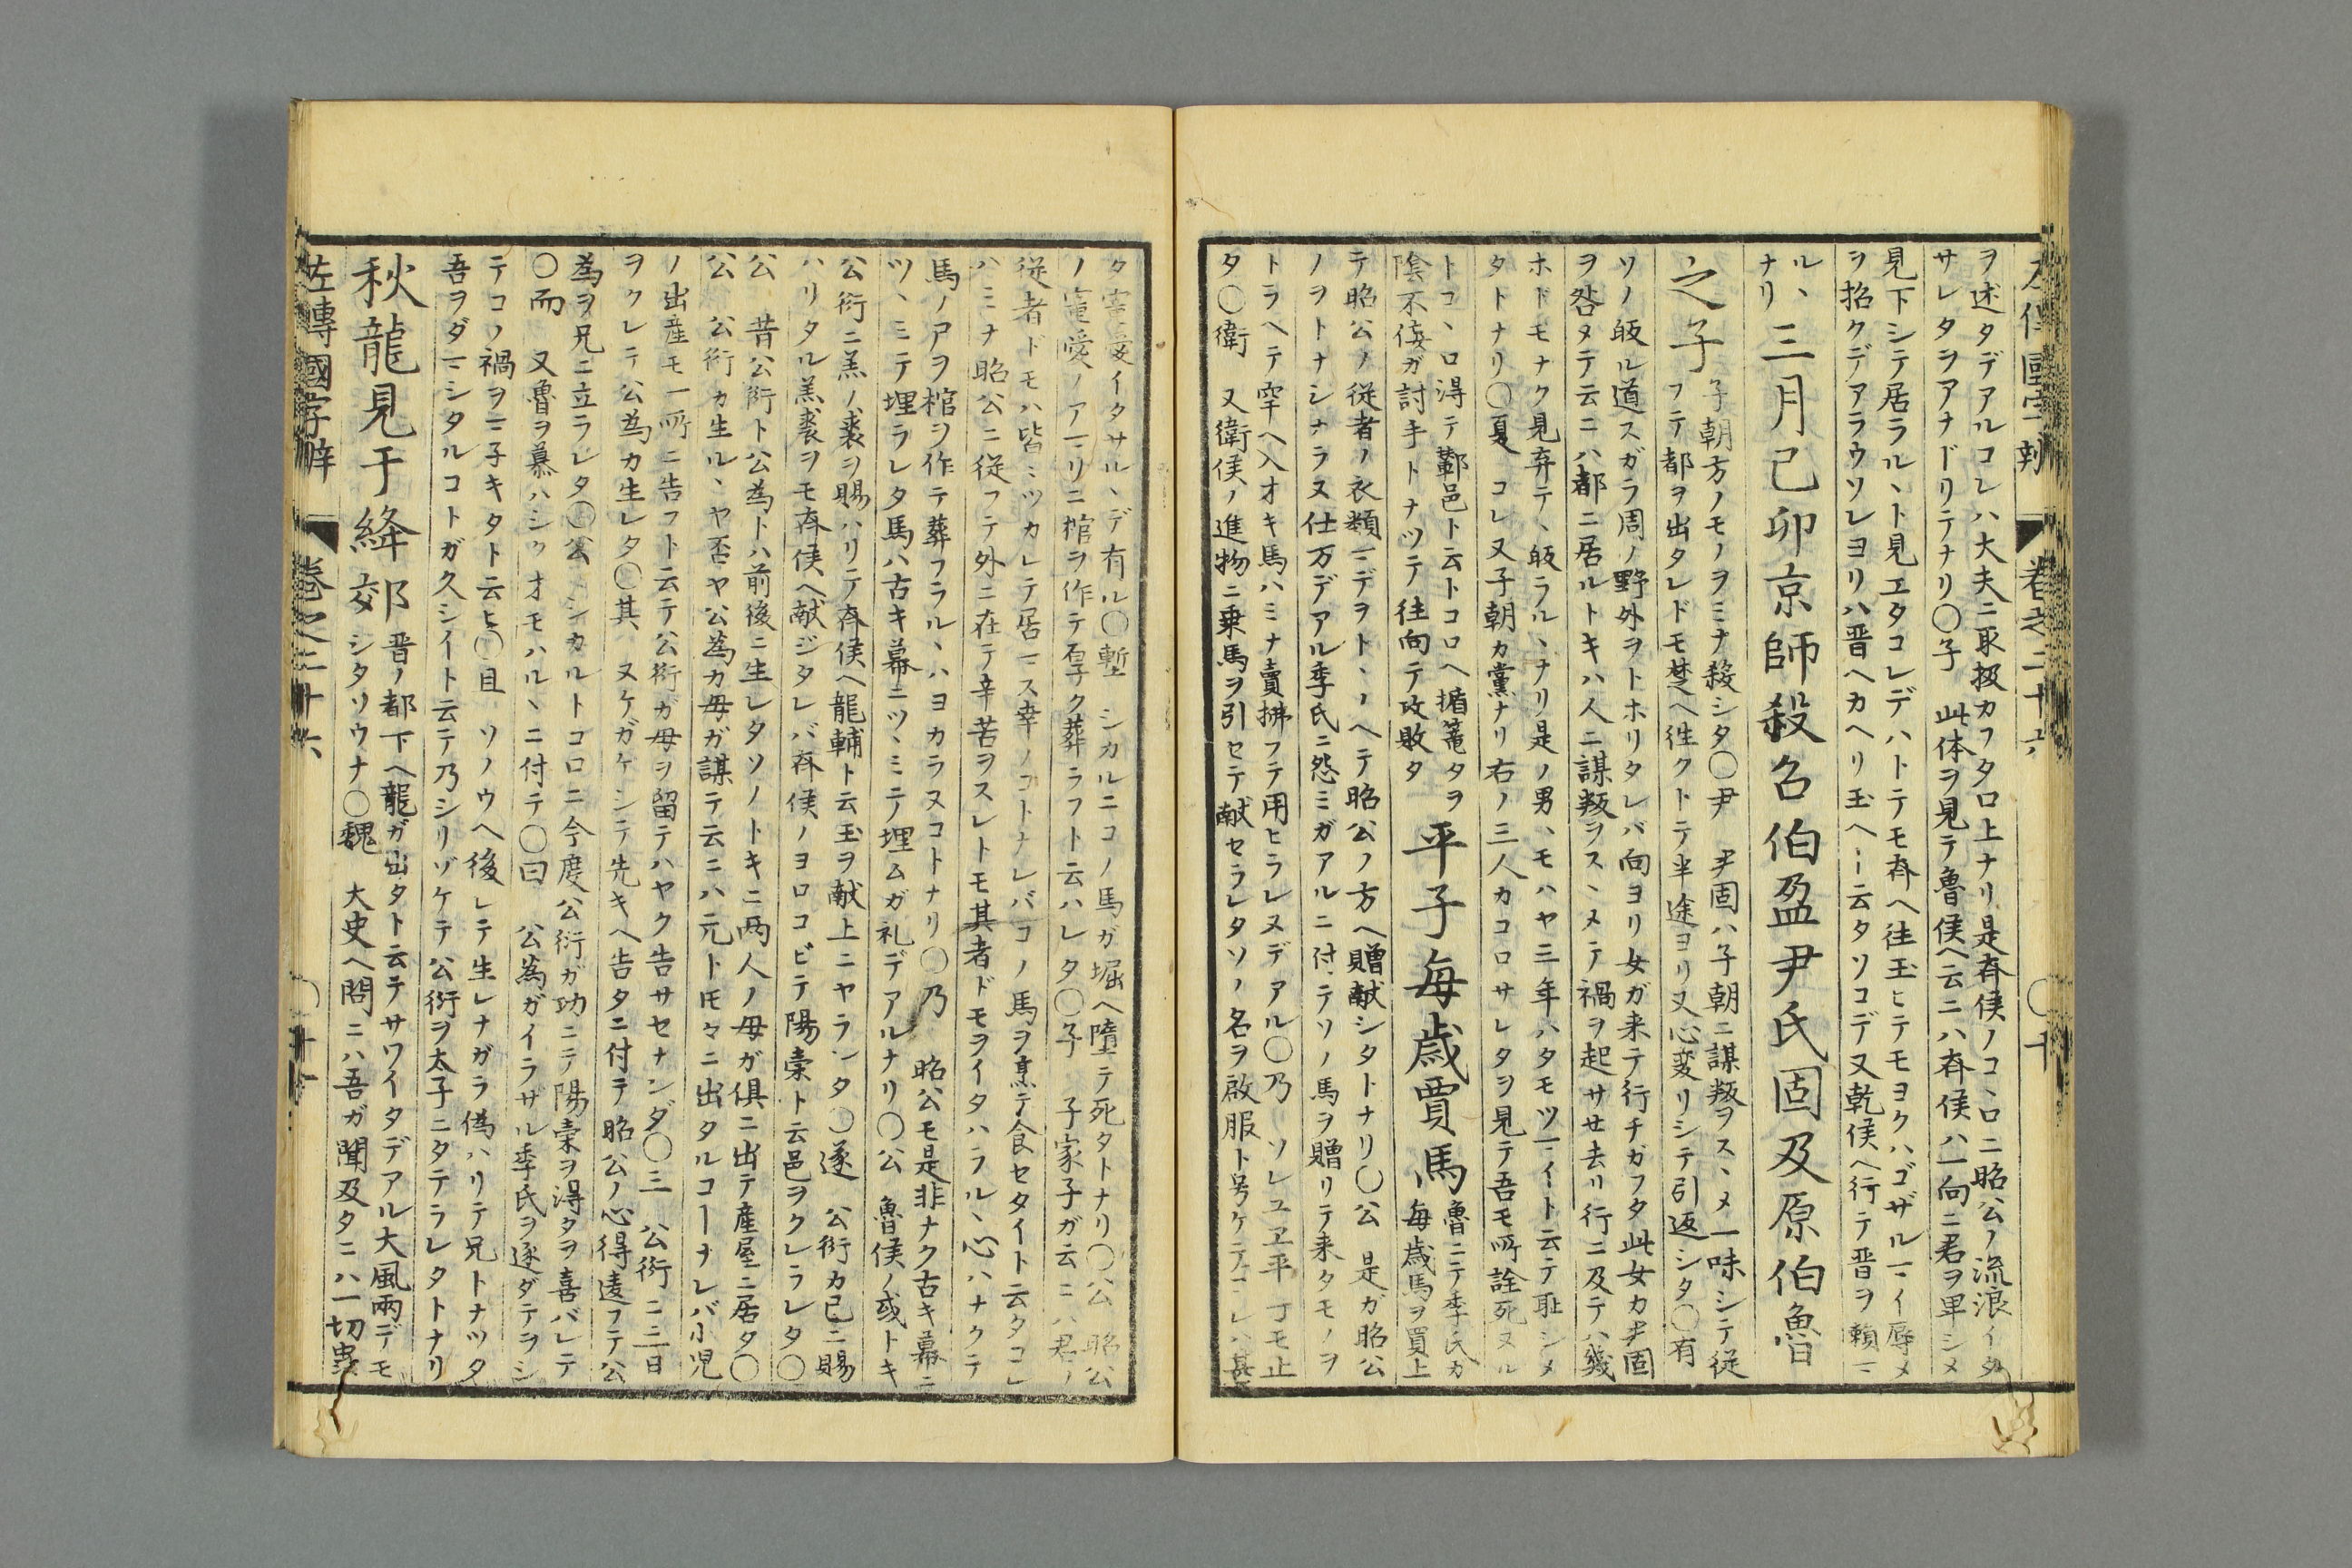 ヲ述タデアルコレハ大夫ニ取扱カフタロ上ナリ是斉侯ノコヽロニ昭公ノ流浪イタ
サレタヲアナドリテナリ〇子 此体ヲ見テ魯侯ヘ云ニハ斉侯ハ一向ニ君ヲ卑シメ
見下シテ居ラルヽト見エタコレデハトテモ斉ヘ往玉ヒテモヨクハゴザルマイ辱メ
ヲ招クデアラウソレヨリハ晋ヘカヘリ玉ヘト云タソコデ又乾侯ヘ行テ晋ヲ頼マ
ルヽ
ナリ
三月己卯京師殺召伯盈尹氏固及原伯魯
之子
子朝方ノモノヲミナ殺シタ〇尹 尹固ハ子朝ニ謀叛ヲスヽメ一味シテ従
フテ都ヲ出タレドモ楚ヘ往クトテ半途ヨリ又心変リシテ引返シタ〇有
ソノ皈ル道スガラ周ノ野外ヲトホリタレバ向ヨリ女ガ来テ行チガフタ此女カ尹固
ヲ咎メテ云ニハ都ニ居ルトキハ人ニ謀叛ヲスヽメテ禍ヲ起サセ去リ行ニ及テハ幾
ホドモナク見弃テヽ皈ラルヽナリ是ノ男ヽモハヤ三年ハタモツマイト云テ耻シメ
タトナリ〇夏 コレ又子朝カ黨ナリ右ノ三人カコロサレタヲ見テ吾モ所詮死ヌル
トコヽロ得テ鄻邑ト云トコロヘ楯篭タヲ
陰不佞ガ討手トナツテ往向テ攻敗タ
平子毎歳賈馬
魯ニテ季氏カ
毎歳馬ヲ買上
テ昭公ノ従者ノ衣類マデヲトヽノヘテ昭公ノ方ヘ贈献シタトナリ〇公 是ガ昭公
ノヲトナシナラヌ仕万デアル季氏ニ怨ミガアルニ付テソノ馬ヲ贈リテ来タモノヲ
トラヘテ窂ヘ入オキ馬ハミナ賣拂フテ用ヒラレヌデアル〇乃 ソレユヱ平 丁モ止
タ〇衛 又衛侯ノ進物ニ乗馬ヲ引セテ献セラレタソノ名ヲ啟服ト号ケテ
イタサルヽデ有ル〇塹 シカルニコノ馬ガ堀ヘ墮テ死タトナリ〇公 昭公
ノ寵愛ノアマリニ棺ヲ作テ厚ク葬ラフト云ハレタ〇子 子家子ガ云ニハ君ノ
従者ドモハ皆ミツカレテ居マス幸ノコトナレバコノ馬ヲ烹テ食セタイト云タコレ
ハミナ昭公ニ従フテ外ニ在テ辛苦ヲスレトモ其者ドモヲイタハラルヽ心ハナクテ
馬ノ尸ヲ棺ヲ作テ葬フラルヽハヨカラヌコトナリ〇乃 昭公モ是非ナク古キ幕ニ
ツヽミテ埋ラレタ馬ハ古キ幕ニツヽミテ埋ムガ礼デアルナリ〇公 魯侯ノ或トキ
公衍ニ羔ノ裘ヲ賜ハリテ斉侯ヘ龍輔ト云玉ヲ献上ニヤラシタ〇遂 公衍カ已ニ賜
ハリタル羔裘ヲモ斉侯ヘ献ジタレバ斉侯ノヨロコビテ陽榖ト云邑ヲクレラレタ〇
公 昔公衍ト公為トハ前後ニ生レタソノトキニ両人ノ母ガ倶ニ出テ産屋ニ居タ〇
公 公衍カ生ルヽヤ否ヤ公為カ母ガ謀テ云ニハ元ト圧々ニ出タルコトナレバ小児
ノ出産モ一所ニ告フト云テ公衍ガ母ヲ留テハヤク告サセナンダ〇三 公衍ニ三日
ヲクレテ公為カ生レタ〇其 ヌケガケシテ先キヘ告タニ付テ昭公ノ心得違フテ公
為ヲ兄ニ立ラレタ〇公 シカルトコロニ今度公衍ガ功ニテ陽榖ヲ得タヲ喜バレテ
〇而 又魯ヲ慕ハシウオモハルヽニ付テ〇曰 公為ガイラザル季氏ヲ逐ダテヲシ
テコノ禍ヲマ子キタト云ヒ〇且 ソノウヘ後レテ生レナガラ偽ハリテ兄トナツタ
吾ヲダマシタルコトガ久シイト云テ乃シリゾケテ公衍ヲ太子ニタテラレタトナリ
秋龍見于絳郊
晋ノ都下ヘ龍ガ出タト云テサワイタデアル大風雨デモ
シタソウナ〇魏 大史ヘ問ニハ吾ガ聞及タニハ一切蟲
左傳國字辨 巻之二十六 〇十一